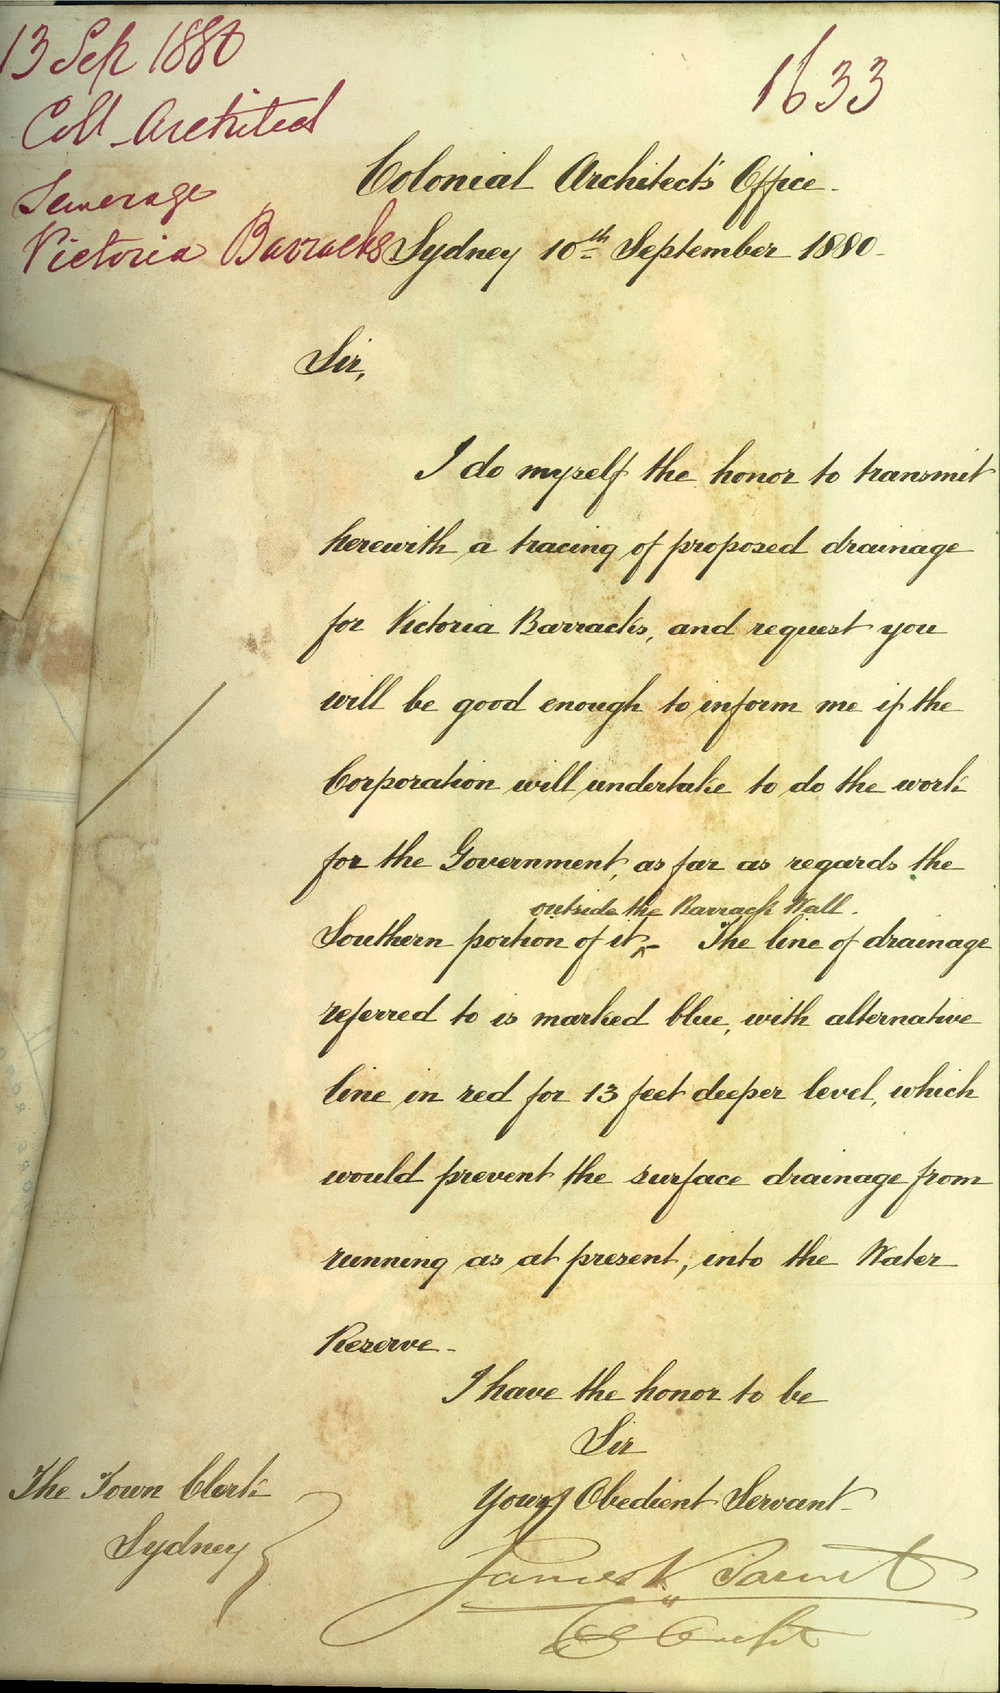 13 Sep 1880
1633
Coll Architect
Sewerage
Victoria Barracks
Colonial Architect's Office.
Sydney 10th September 1880.
Sir,
I do myself the honor to transmit
herewith a tracing of proposed drainage
for Victoria Barracks, and request you
will be good enough to inform me if the
Corporation will undertake to do the work
for the Government, as far as regards the
outside the Barrack Wall.
Southern portion of it ^ - The line of drainage
referred to is marked blue, with alternative
line in red for 13 feet deeper level, which
would prevent the surface drainage from
running as at present, into the Water
Reserve.
I have the honor to be
Sir
Your Obedient Servant
The Town Clerk
Sydney
James Barnet